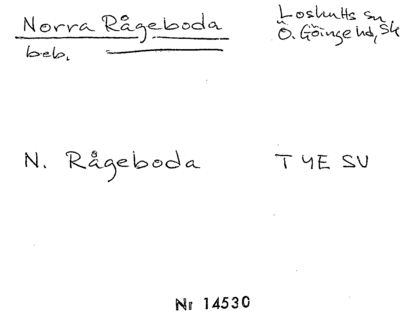 Norra Rågeboda
beb.
Loshults sn
Ö. Göinge hd, Sk
N. Rågeboda
T 4E SV
Nr 14530